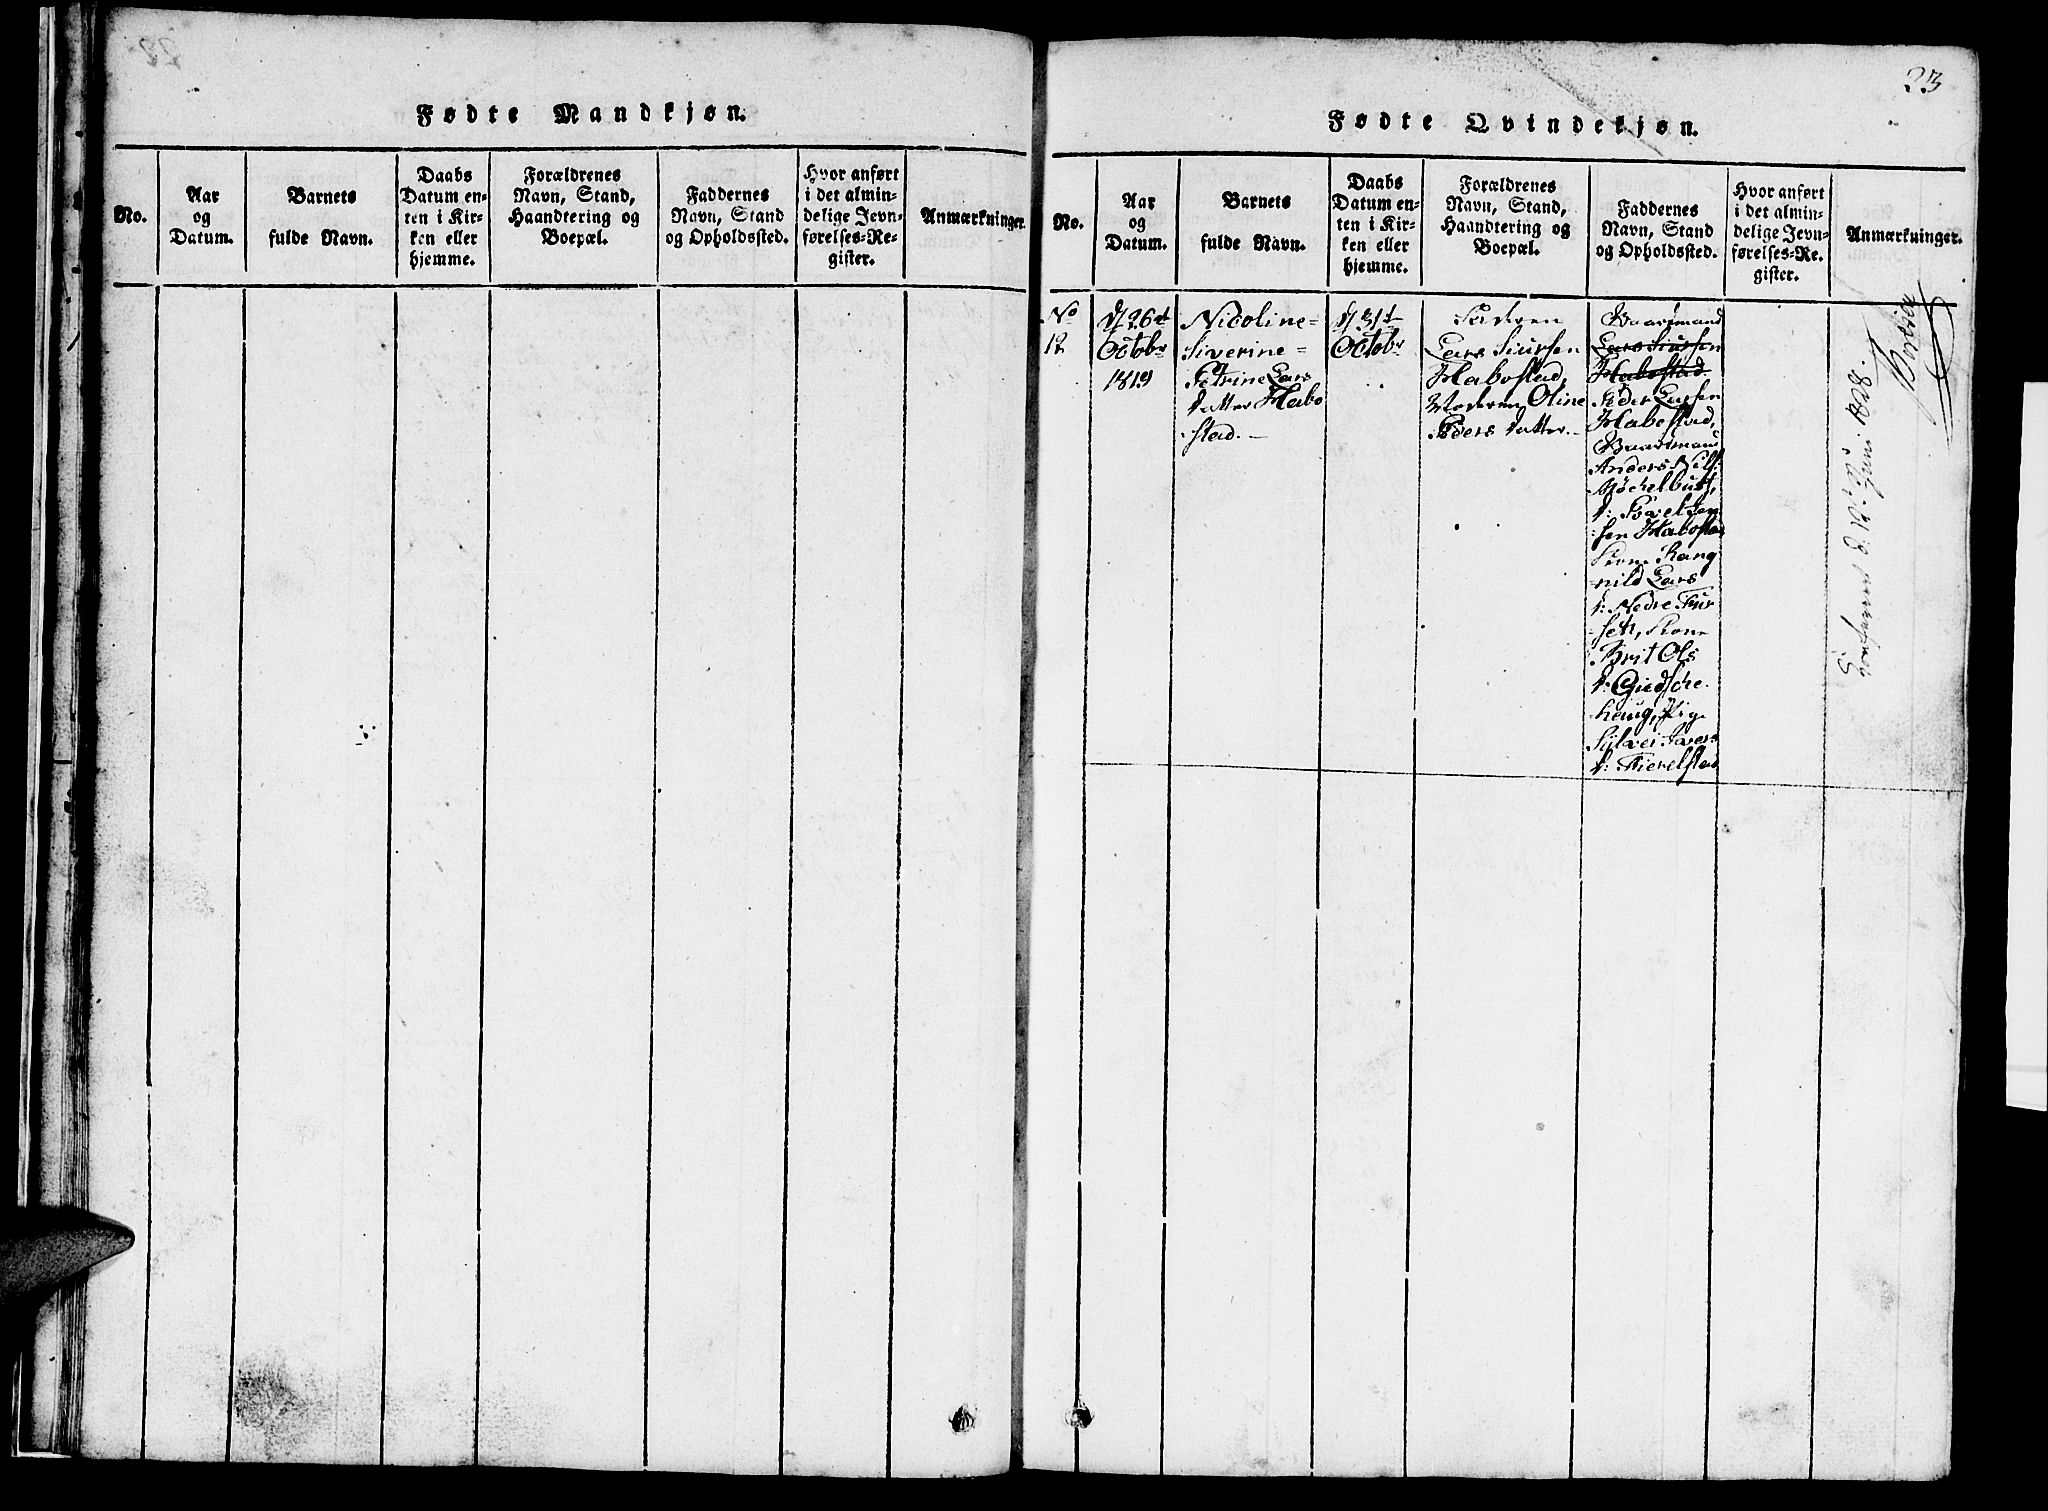 Fødte Mandkjøn.
No.
Aar
og
Datum.
Barnets
fulde Navn.
Daabs
Datum en-
ten i Kir-
ken eller
hjemme.
Forældrenes
Navn, Stand,
Haandtering og
Boepæl.
Faddernes
Navn, Stand
og Opholdssted.
Hvor anført
i det almin-
delige Jevn-
førelses-Re-
gister.
Anmærkninger
23
Fødte Qvindekjøn.
No.
Aar
og
Datum.
Barnets
fulde Navn.
Daabs
Datum en-
ten i Kir-
ken eller
hjemme.
Forældrenes
Navn, Stand,
Haandtering og
Boepæl.
Faddernes
Navn, Stand
og Opholdssted.
Hvor anført
i det almin-
delige Jevn-
førelses-Re-
gister.
Anmærkninger.
No
12
d 26d
Octobr
1819
Nicoline=
Siverine=
Petrine Lars
datter Habo
stad.
d 31t
Octobr
Faderen
Lars Siursen
Habostad,
Moderen Oline
Peders datter.
Baadsmand
Lars Siursen
Habostad.
Peder Larsen
Habostad,
Baadsmand
Anders Nils:
Möchelbust,
sen Habostad
Kone Rang
nild Lars
d: Nedre Fur
seth, Kone
Brit Ols
d: Giedsche
houg, Pig.
Sylvei Ivers
d: Fierelstad
1828.